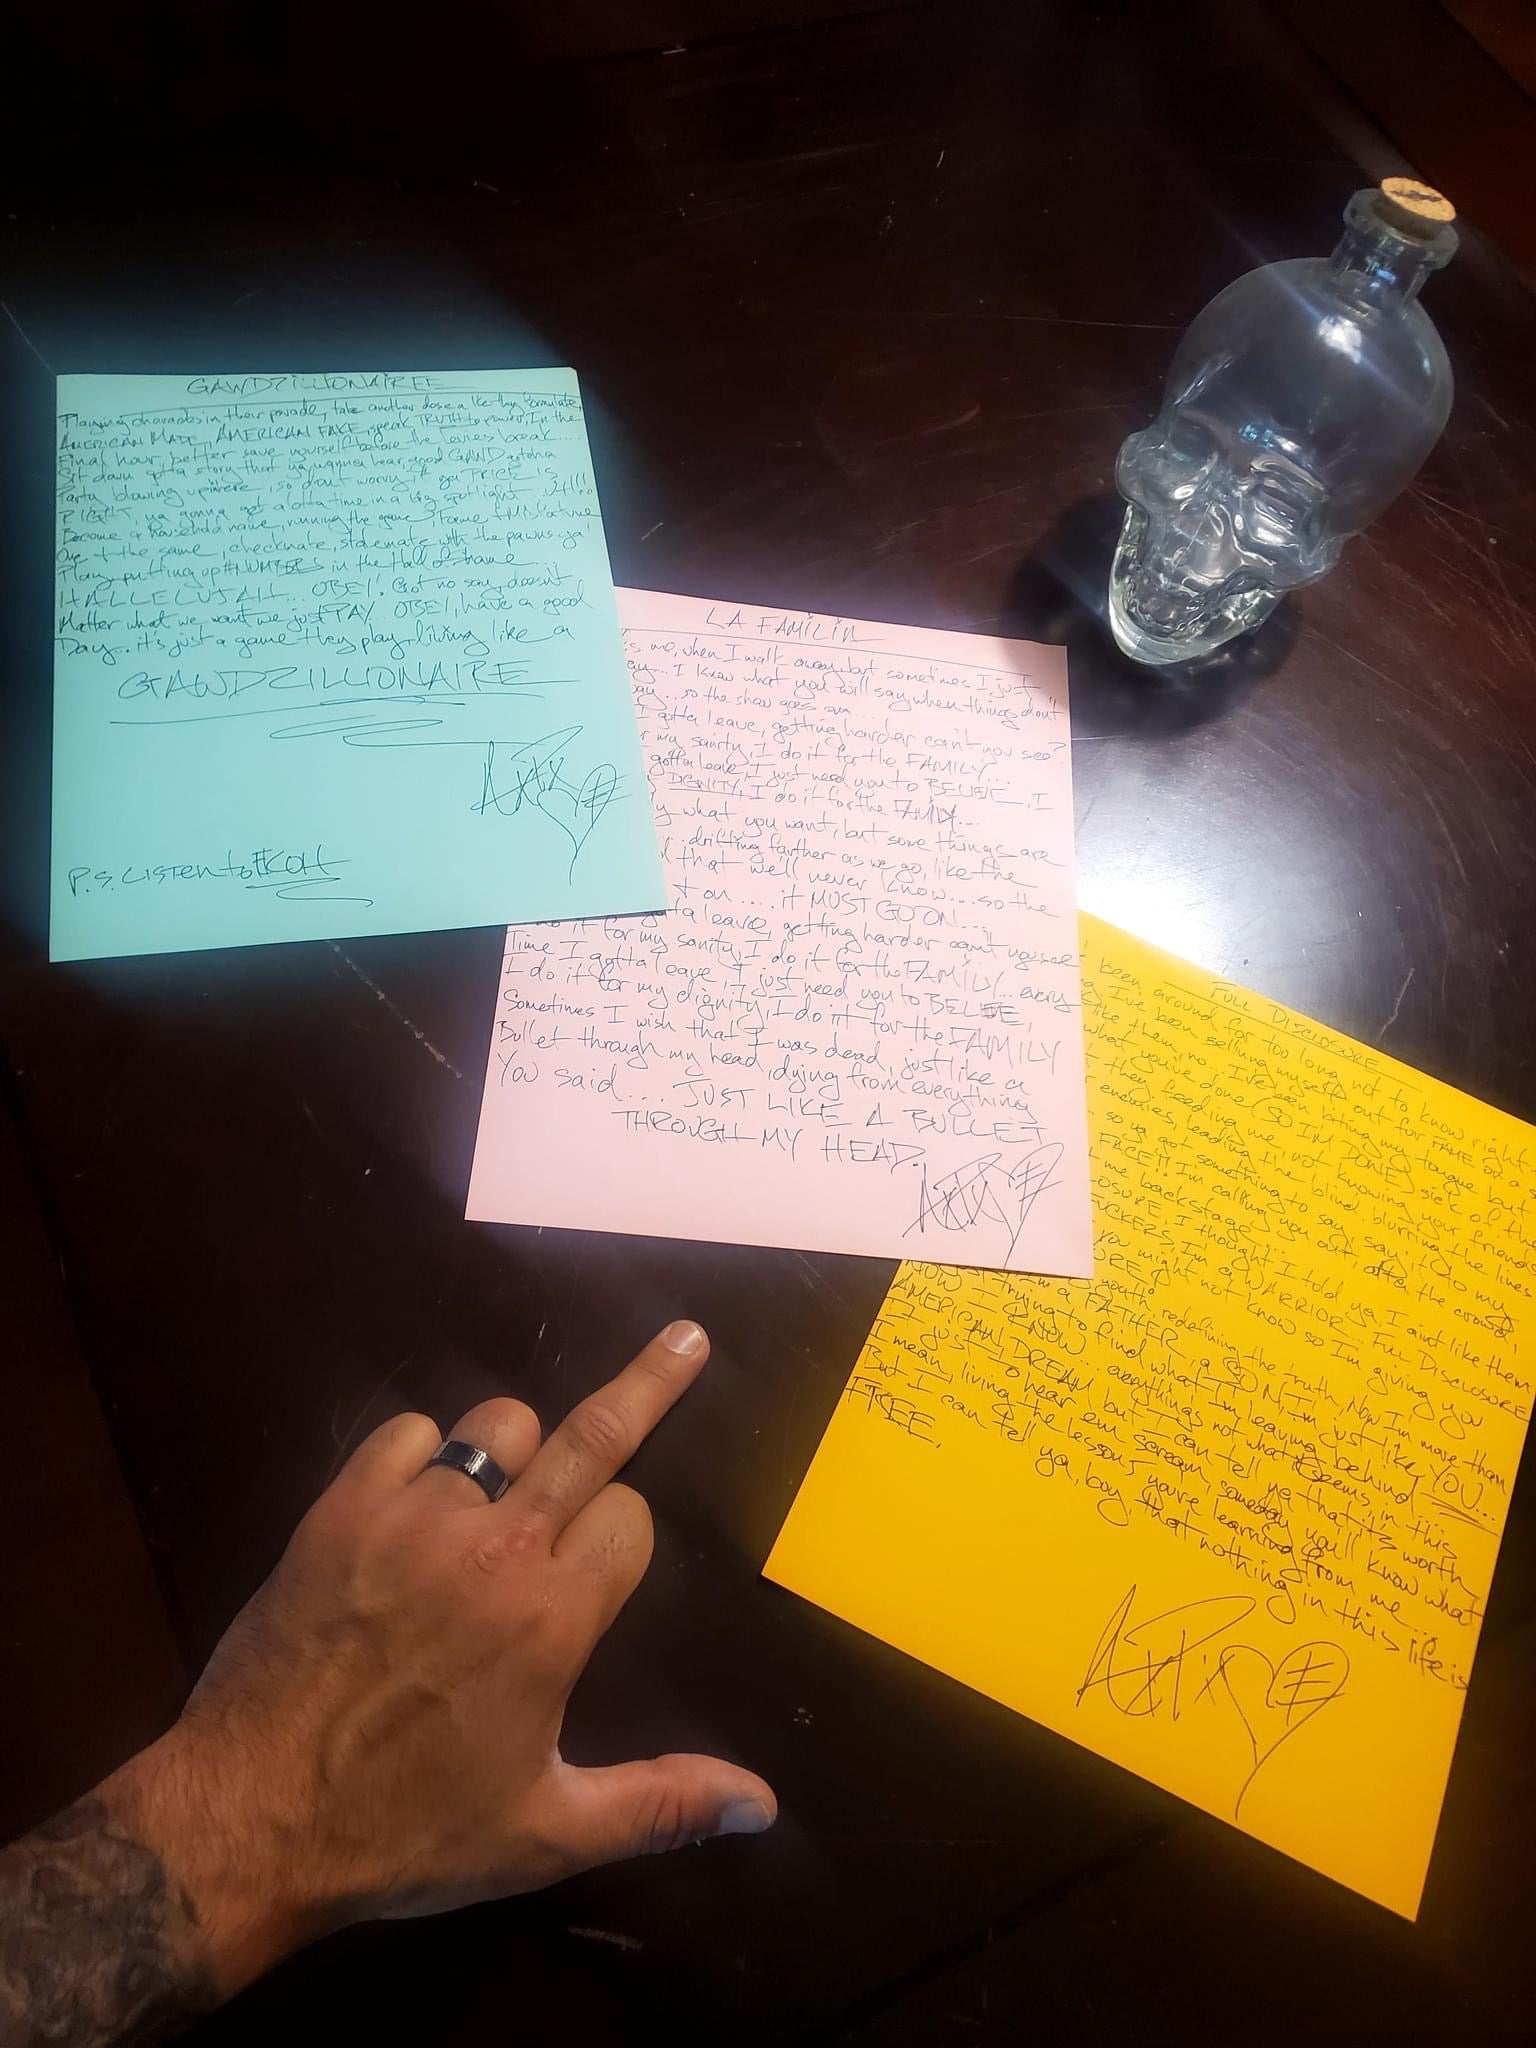 GAWDZILLIONAIREE
Playing charades in their parade, take another dose a
AMERICAN MADE, AMERICAN FAKE, speak TRUTH to power, In the
Final hour, better save yourself before the levies break....
Sit down gotta story that ya wanna hear, good GAWD gotcha
Party blowing up in here, so don't worry if ya PRICE is
RIGHT, ya gonna get a lotta time in a big spotlight
Become a household name, running the game, Fame + Misfortune
One + the same, checkmate, stalemate with the pawns ya
Play, putting up #NUMBERS in the Hall of shame...
HALLELUJAH... OBEY! Got no say, doesn't
Matter what we want we just PAY... OBEY, have a good
Day... it's just a game they play - living like a
GAWDZILLIONAIRE
P.S. Listen to EKOH
LA FAMILIA
is me, when I walk away, but sometimes I just
I know what you will say, when things don't
so the show goes on...
I gotta leave, getting harder can't you see?
my sanity, I do it for the FAMILY...
gotta leave, I just need you to BELIEVE, I
DIGNITY, I do it for the FAMILY...
what you want, but some things are
drifting farther as we go, like the
that we'll never know... so the
on.... it MUST GO ON...
gotta leave, getting harder can't you see
do it for my sanity, I do it for the FAMILY... every
Time I gotta leave, I just need you to BELIEVE,
I do it for my dignity, I do it for the FAMILY
Sometimes I wish that I was dead, just like a
Bullet through my head, dying from everything
You said.... JUST LIKE A BULLET
THROUGH MY HEAD.
FULL DISCLOSURE
been around for too long not to know right
I've been selling myself out for FAME or a
like them, no... I've been biting my tongue but
what you've done (SO I'M DONE) sick of the
they feeding me, not knowing your friends
enemies, leading the blind, blurring the lines
so ya got something to say, say it to my
FACE!! I'm calling you out, after the crowd,
me backstage!.. I thought I told ya, I aint like them
I'm a WARRIOR... FULL DISCLOSURE
you might not know so I'm giving you
youth, redefining the truth, Now I'm more than
I'm a FATHER, a SON, I'm just like YOU...
trying to find what I'm leaving behind....
NOW I KNOW... everything's not what it seems, in this
AMERICAN DREAM but I can tell ya that it's worth
It just to hear em scream, someday you'll know what
I mean, living the lesson, you're learning from me...
But I can tell ya, boy, that nothing in this life is
FREE.